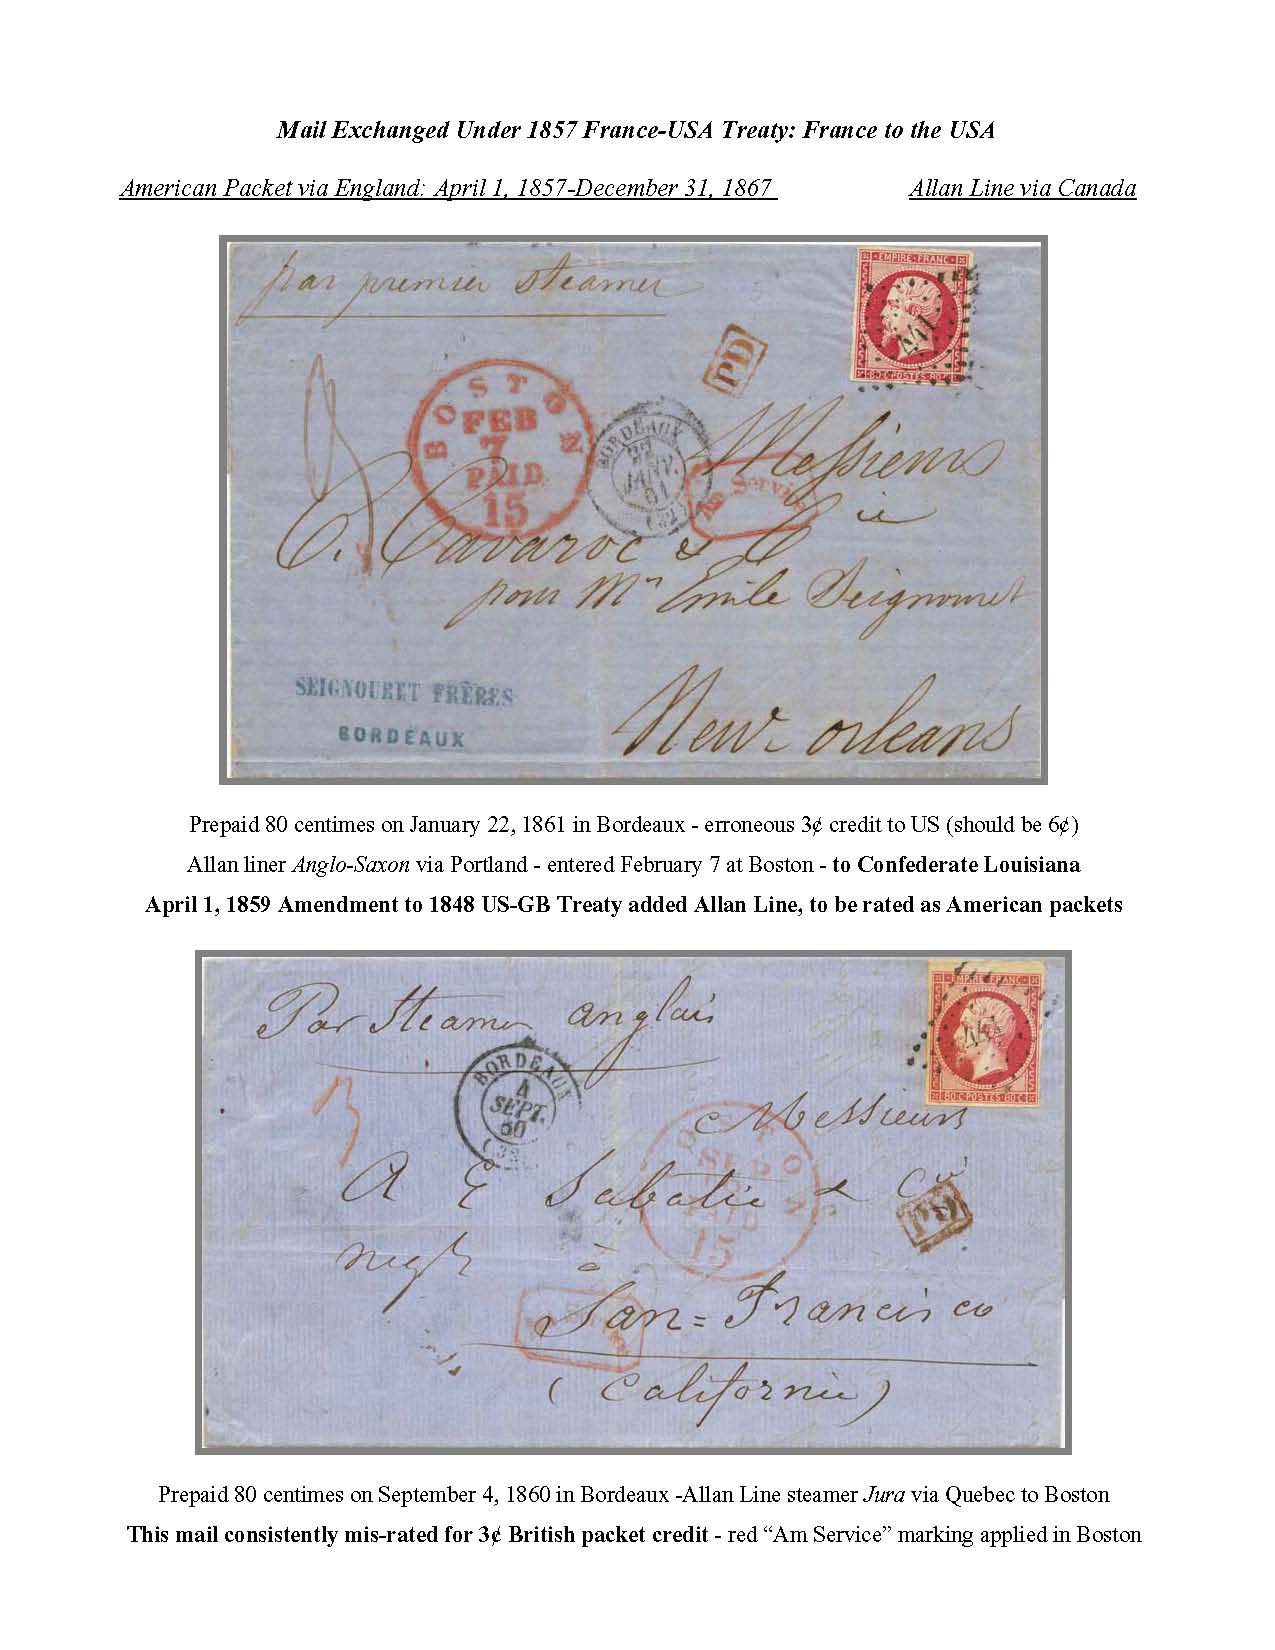 Mail Exchanged Under 1857 France-USA Treaty: France to the USA
American Packet via England: April 1, 1857-December 31, 1867 Allan Line via Canada
par premier steamer
EMPIRE FRANC
441
80 C POSTES 80 C
PD
BOSTON
FEB
7
PAID
15
BORDEAUX
22
JANV.
61
(32)
Am Service
Messieurs
C. Cavaroc & Cie
pour Mr Emile Seignouret
SEIGNOURET FRÈRES
BORDEAUX
New-orleans
Prepaid 80 centimes on January 22, 1861 in Bordeaux - erroneous 3¢ credit to US (should be 6¢)
Allan liner Anglo-Saxon via Portland - entered February 7 at Boston - to Confederate Louisiana
April 1, 1859 Amendment to 1848 US-GB Treaty added Allan Line, to be rated as American packets
Par Steamer anglais
EMPIRE FRANC
80 C POSTES 80 C
3
BORDEAUX
4
SEPT.
60
Messieurs
BOSTON
SEP
PAID
15
A E Sabatié & Cie
PD
negts à
San=Francisco
(Californie)
Prepaid 80 centimes on September 4, 1860 in Bordeaux -Allan Line steamer Jura via Quebec to Boston
This mail consistently mis-rated for 3¢ British packet credit - red “Am Service” marking applied in Boston